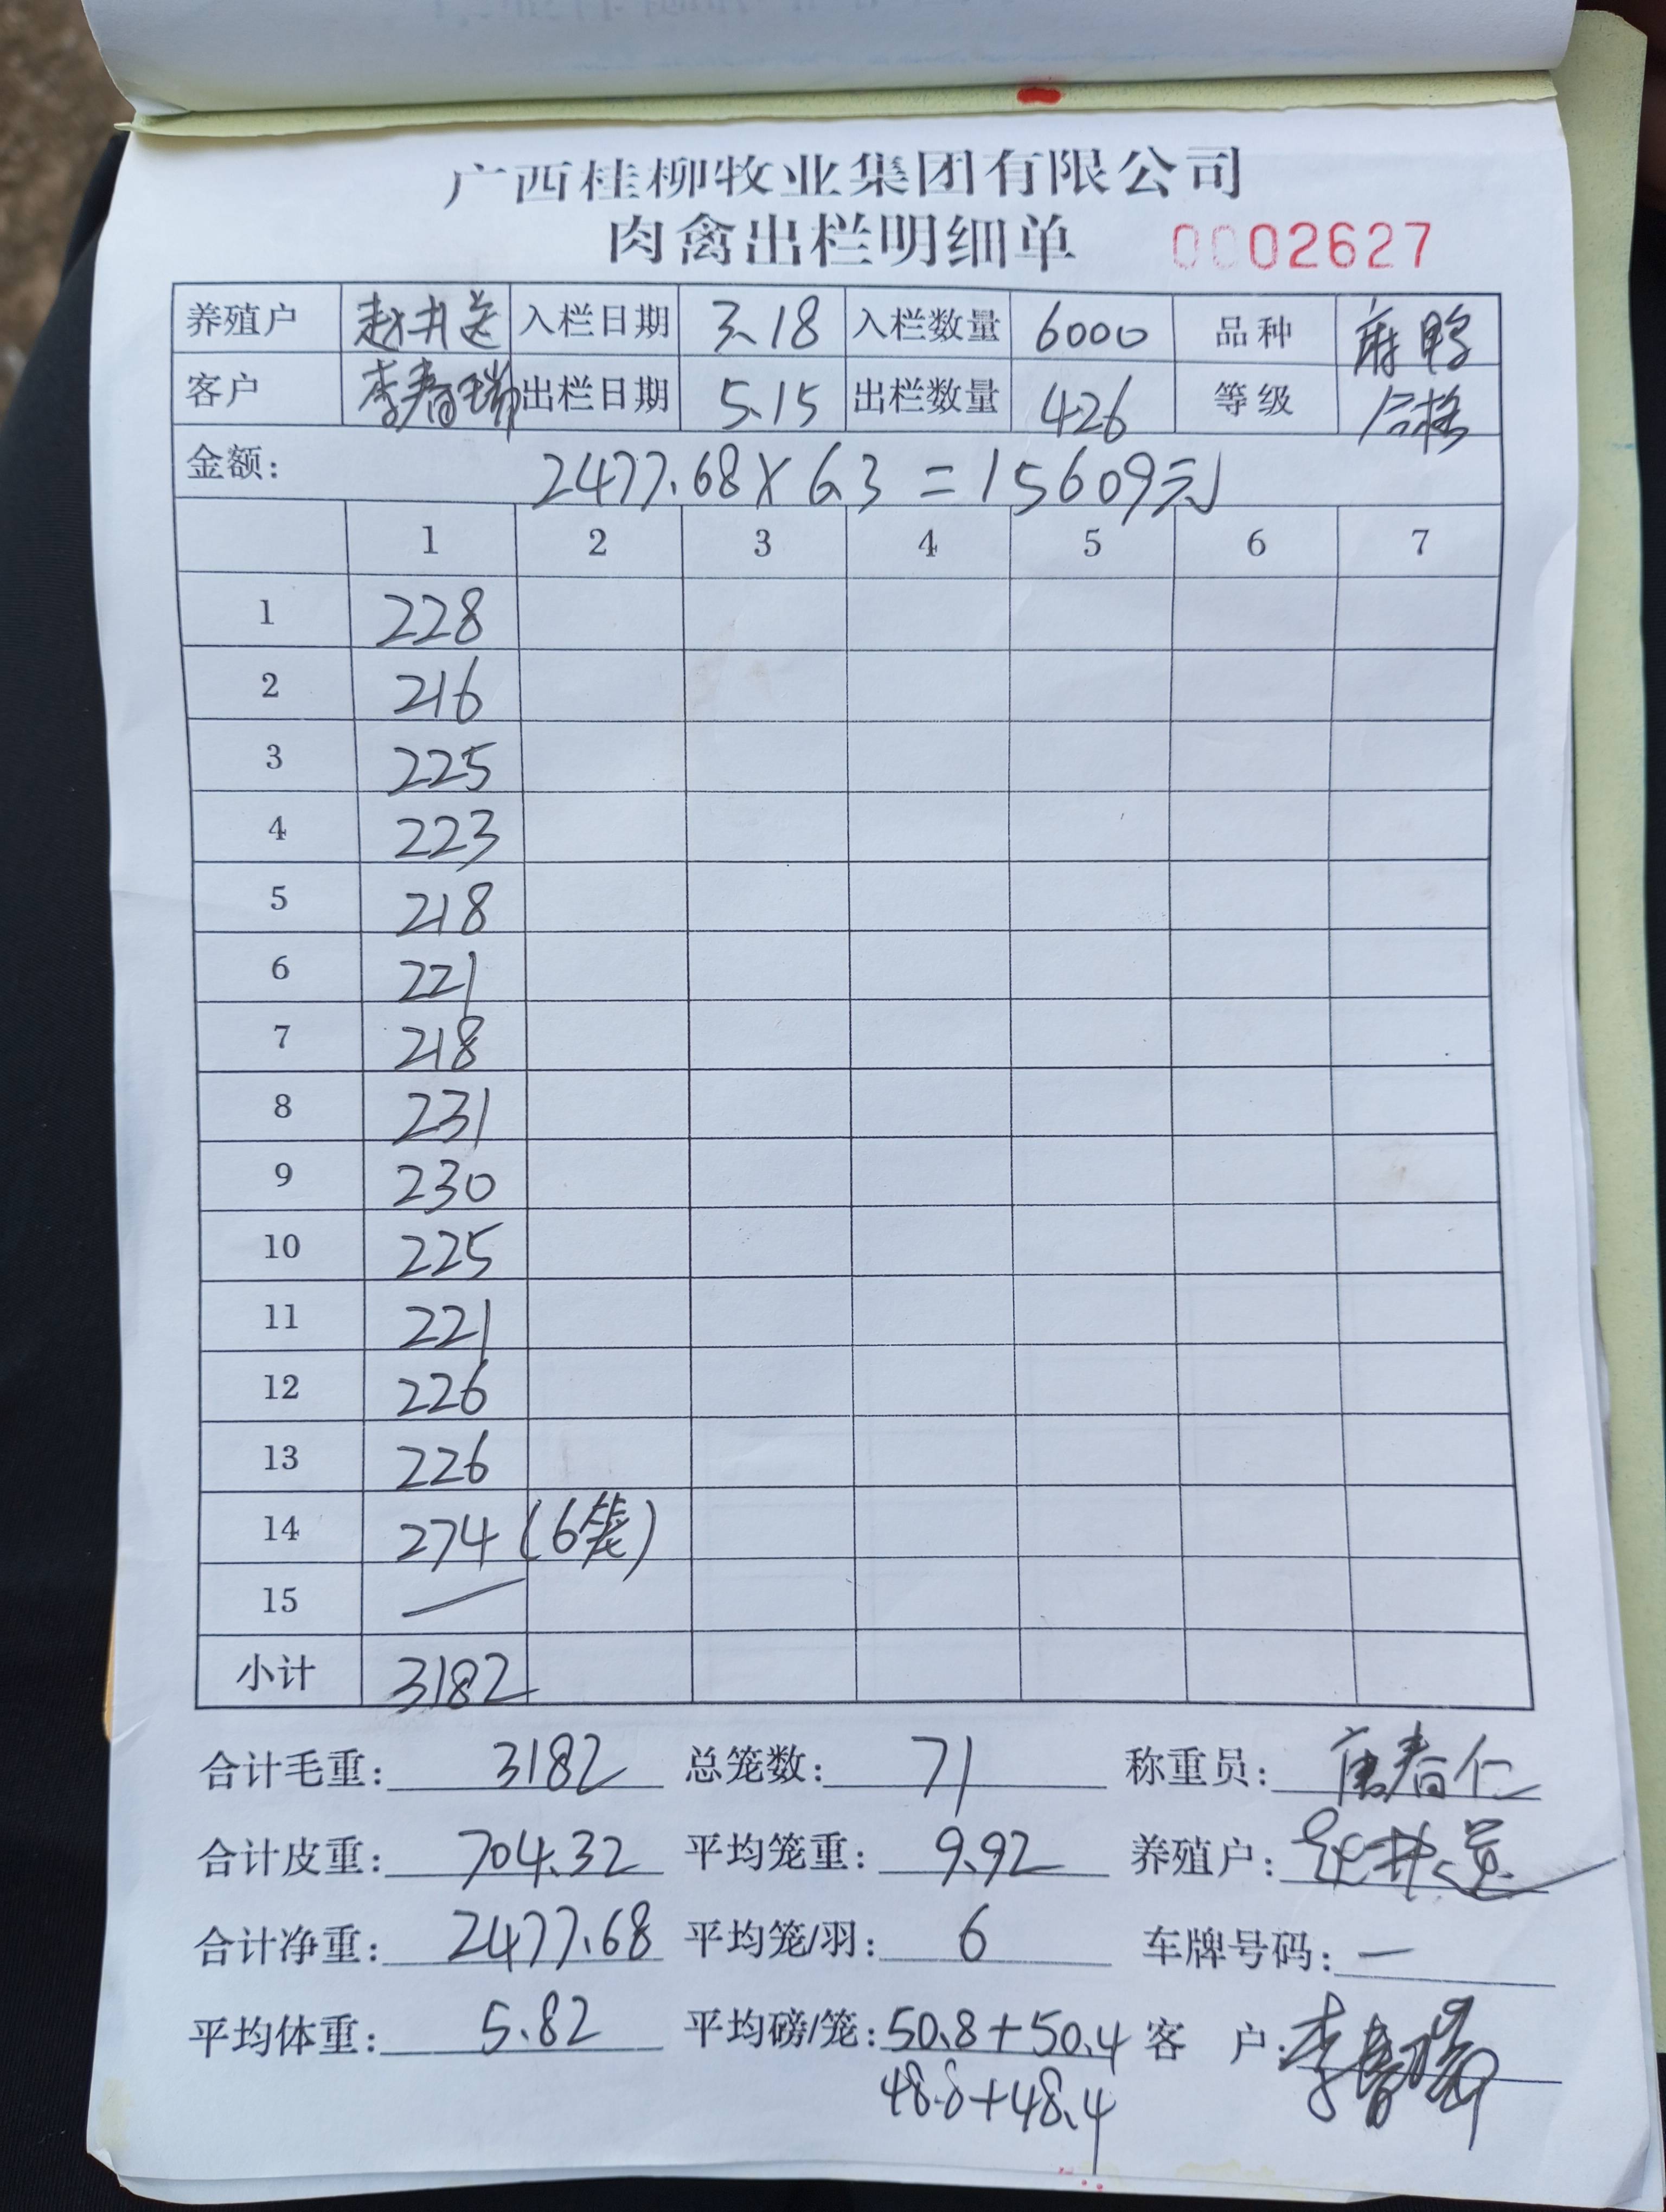 广西桂柳牧业集团有限公司
肉禽出栏明细单 0002627
养殖户 赵井送 入栏日期 3.18 入栏数量 6000 品种 麻鸭
客户 李春瑞 出栏日期 5.15 出栏数量 426 等级 合格
金额: 2477.68×6.3=15609元
1 2 3 4 5 6 7
1 228
2 216
3 225
4 223
5 218
6 221
7 218
8 231
9 230
10 225
11 221
12 226
13 226
14 274(6笼)
15 —
小计 3182
合计毛重: 3182 总笼数: 71 称重员: 唐春仁
合计皮重: 704.32 平均笼重: 9.92 养殖户:
合计净重: 2477.68 平均笼/羽: 6 车牌号码: —
平均体重: 5.82 平均磅/笼: 50.8+50.4 客 户: 李春瑞
48.8+48.4